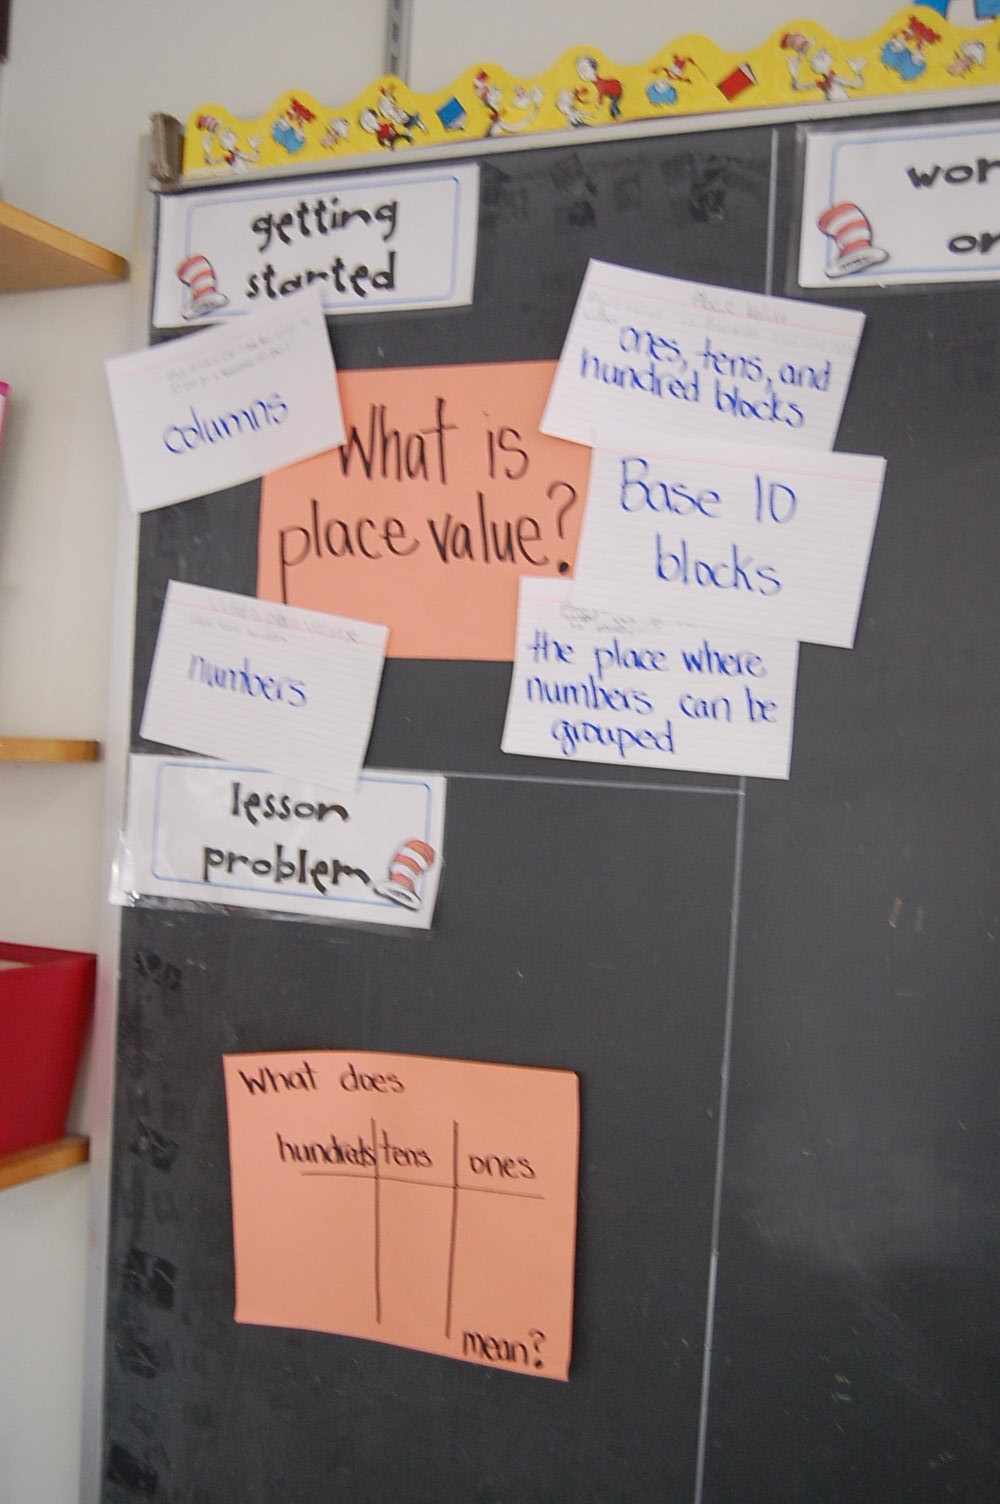 getting
started
wor
or
columns
What is
place value?
Place Value
ones, tens, and
hundred blocks
Base 10
blocks
numbers
the place where
numbers can be
grouped
lesson
problem
What does
hundreds tens ones
mean?